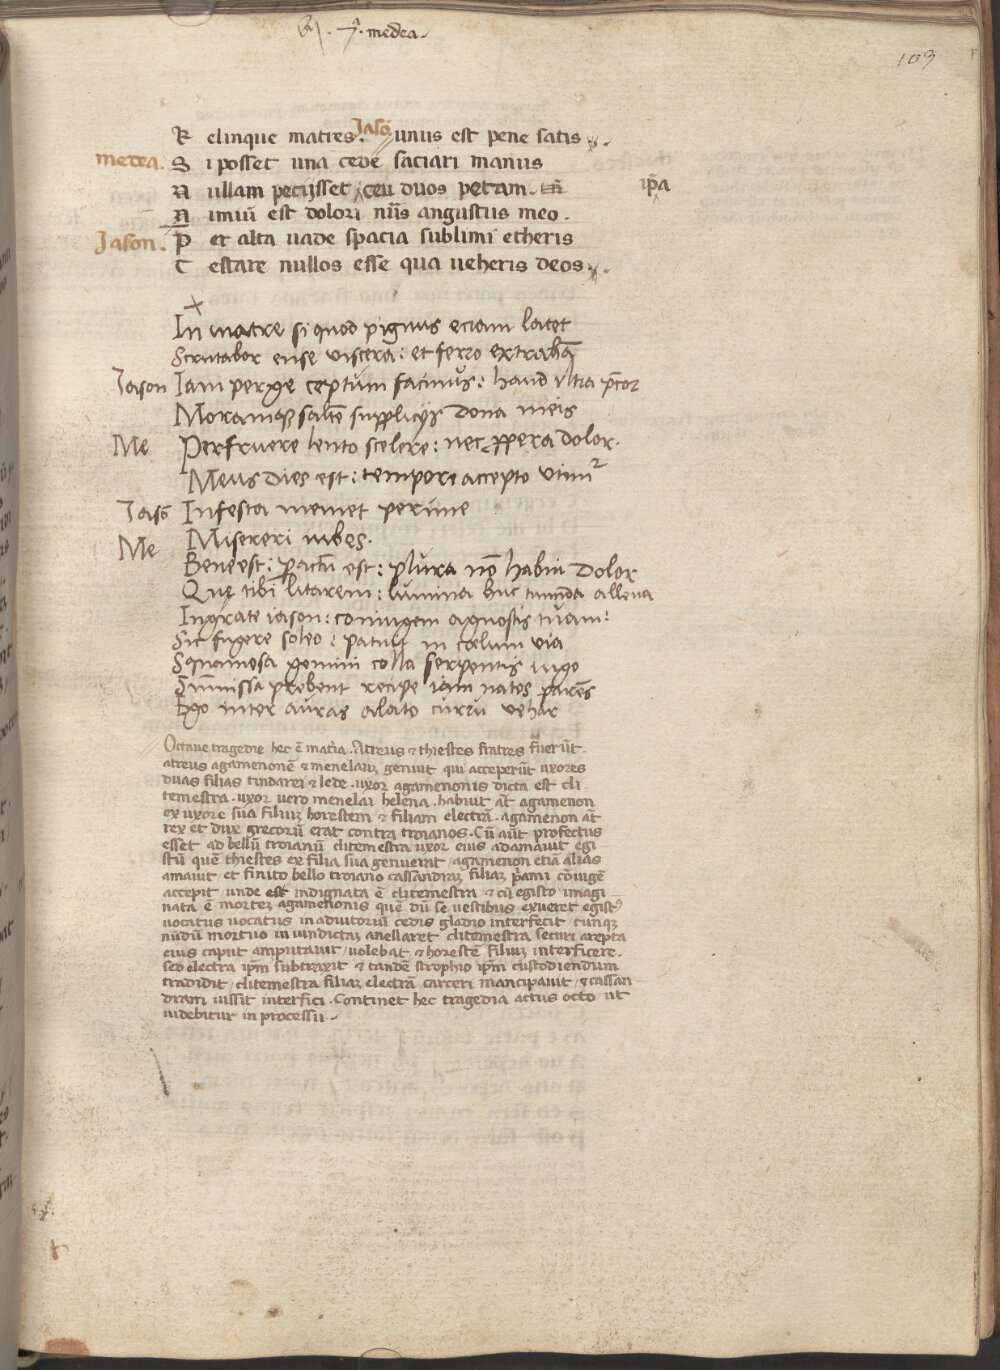 7ª. medea.
103
R elinque matres. Jasō unus est pene satis.
medea. S i posset una cede saciari manus
N ullam petijsset ceu duos petam. ip̄a
N imiū est dolori nūs angustus meo.
Jason. P er alta uade spacia sublimi etheris
T estare nullos esse qua ueheris deos.
In matre si quod pignus eciam latet
Scrutabor ense viscera: et ferro extrahā
Jason Iam perge ceptum facinus: haud vltra p̄cor
Moramq; saltē supplicijs dona meis
Me Perfruere lento scelere: nec ꝓpera dolor.
Meus dies est: tempore accepto vtimr̄
Jasō Infesta memet perime
Me Misereri iubes.
Bene est: pactū est: plura nō habui dolor
Que tibi litarem: lumina huc tumida alleua
Ingrate iason: coniugem agnostis tuam:
Sic fugere soleo: patuit in cœlum via
Squamesa gemini colla serpentis iugo
Sūmissa prębent recipe iam natos parēs
Ego inter auras alato curru vehar
Octaue tragedie hec ē mat̄ia. Atreus & thiestes fratres fuerūt.
atreus agamenonē & menelauȝ genuit qui acceperūt uxores
duas filias tindarei & lede. uxor agamenonis dicta est cli
temestra. uxor uero menelai helena. habuit āt agamenon
ex uxore sua filiuȝ horestem & filiam electrā. agamenon āt
rex et dux grecorū erat contra troianos. Cū aūt profectus
esset ad bellū troianū clitemestra uxor eius adamauit egi
stū quē thiestes ex filia sua genuerat / agamenon etiā alias
amauit / et finito bello troiano cassandraȝ filiaȝ p̄ami cōiugē
accepit / unde est indignata ē clitemestra & cū egisto imagi
nata ē morteȝ agamenonis quē dū se uestibus exueret egist9
uocatus uocatus in adiutoriū cedis gladio interfecit cumq;
nūdū mortuo in uindictaȝ anellaret clitemestra securi arepta
eius caput amputauit / uolebat & horestē filiuȝ interficere.
sed electra ip̄m subtraxit & tandē strophio ip̄m custodiendum
tradidit / clitemestra filiaȝ electrā carceri mancipauit / & cassan
dram iussit interfici. Continet hec tragedia actus octo ut
uidebitur in processu.